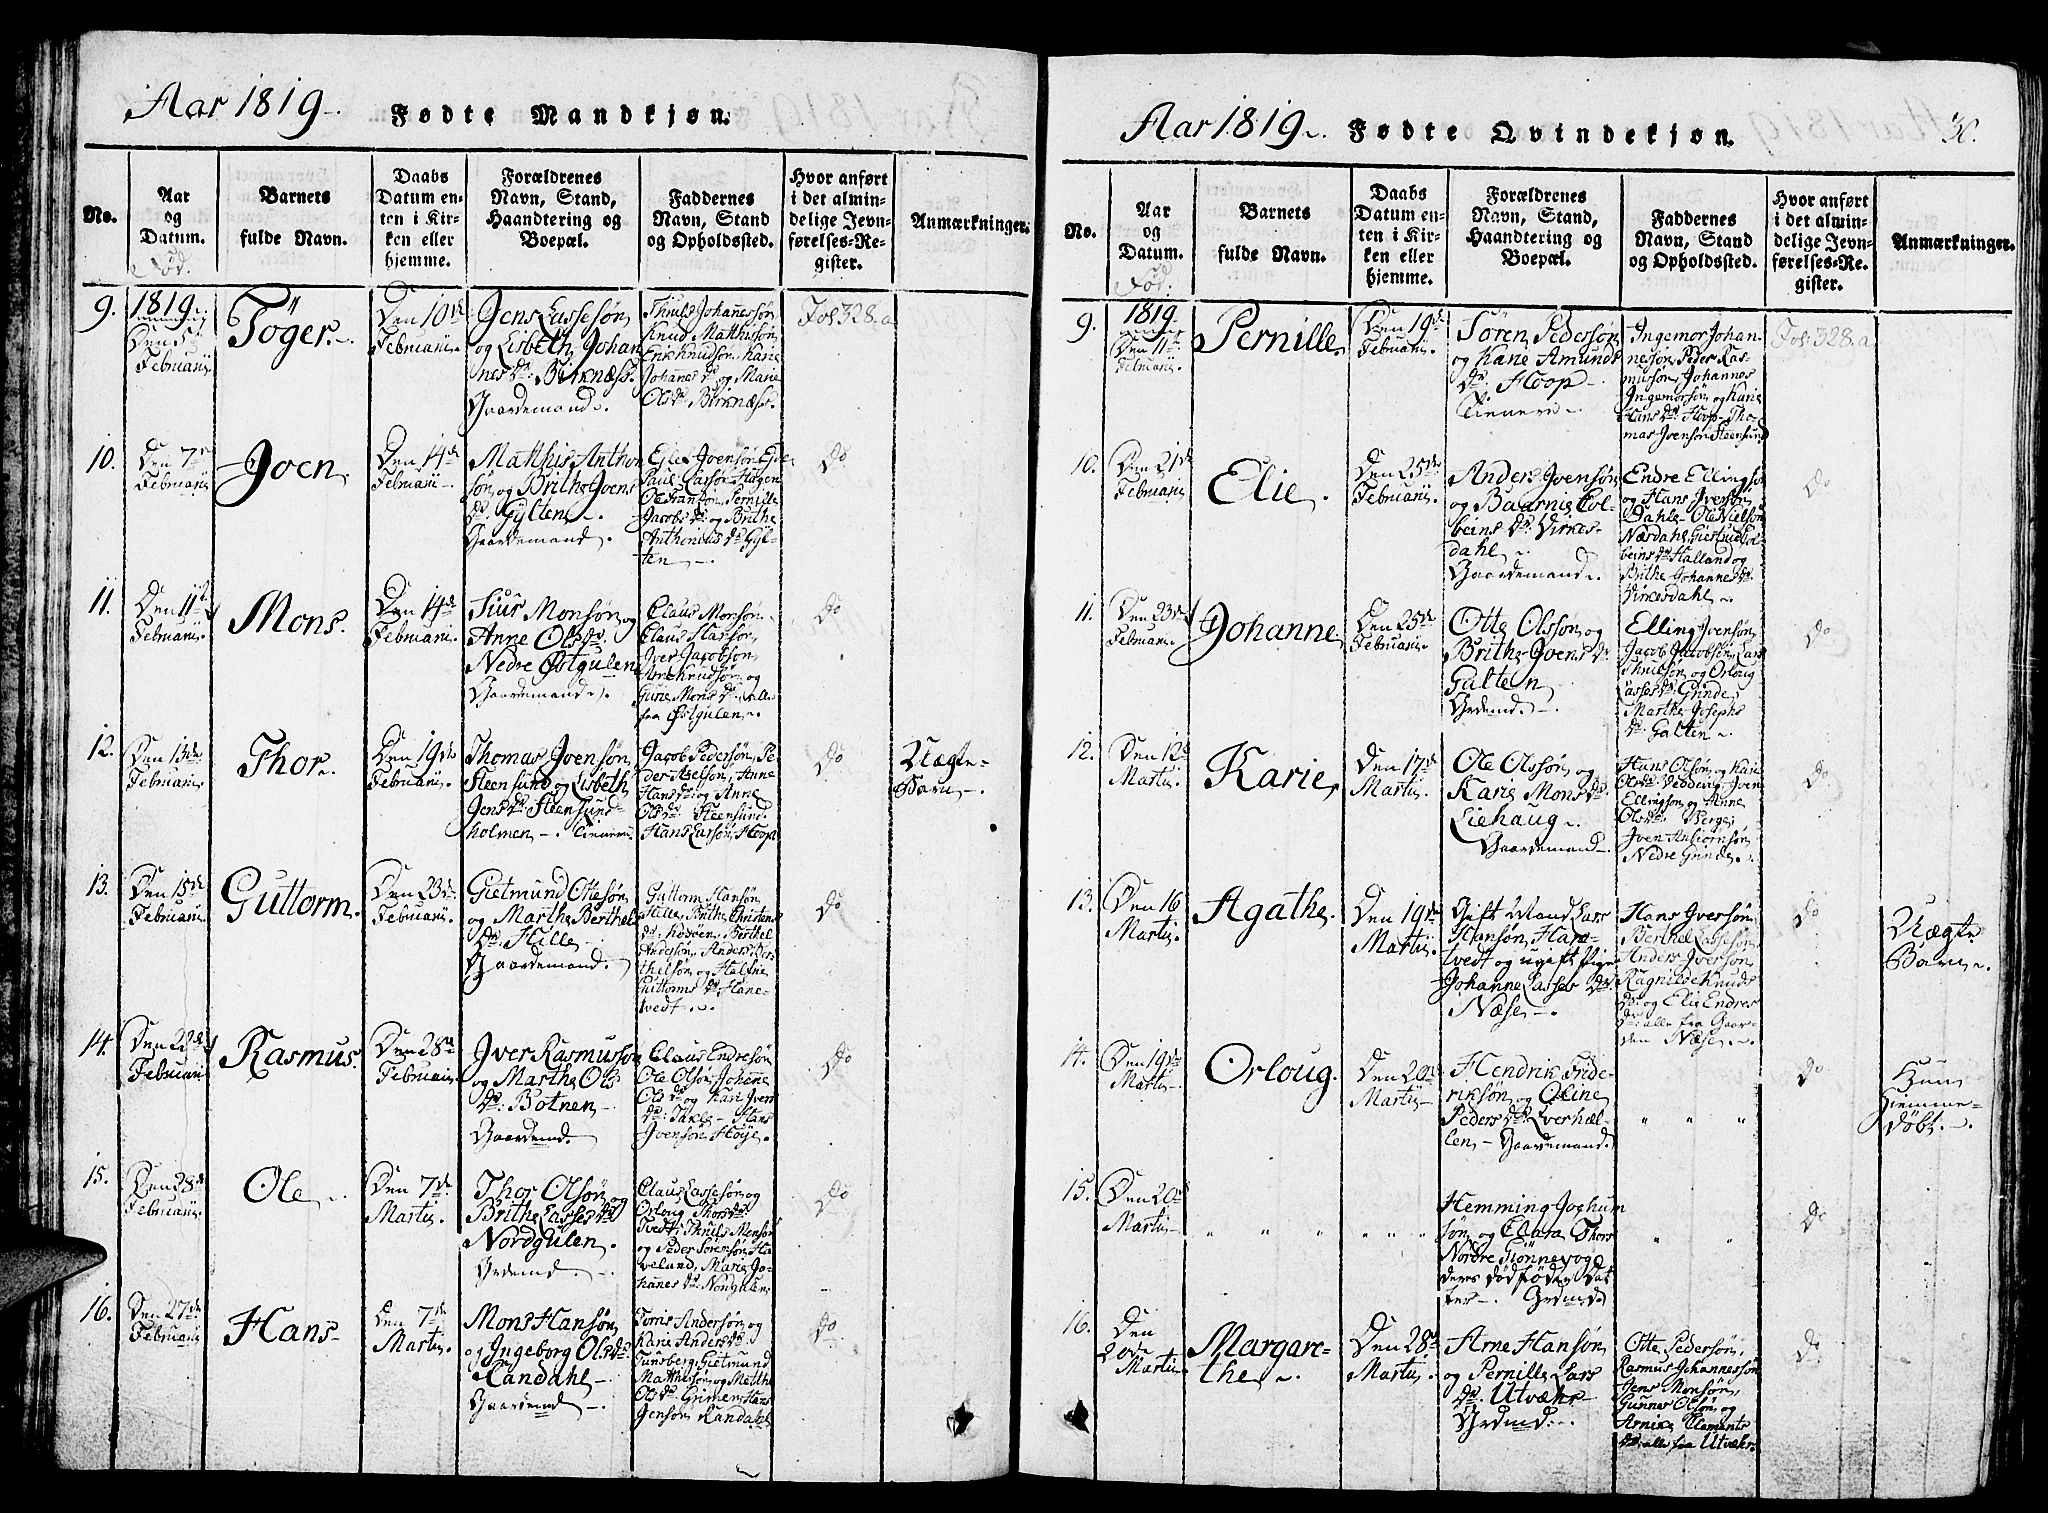 Aar 1819. Fødte Mandkjøn.
No.
Aar
og
Datum.
Fød.
Barnets
fulde Navn.
Daabs
Datum en-
ten i Kir-
ken eller
hjemme.
Forældrenes
Navn, Stand,
Haandtering og
Boepæl.
Faddernes
Navn, Stand
og Opholdssted.
Hvor anført
i det almin-
delige Jevn-
førelses-Re-
gister.
Anmærkninger.
9.
1819.
Den 5te
Februarii
Töger.
Den 10de
Februarii.
Jens Lassesøn
og Lisbeth Johan
nes dr. Birknæss.
Gaardemand.
Thuls Johannessøn
Knud Matthissøn
Erik Knudsøn, Karie
Johannes dr og Marie
Ols dr. Birknæss.
Fol 328. a
10.
Den 7de
Februarii
Joen
Den 14de
Februarii
Matthis Anthon
søn og Brithe Joens
dr. Gylten
Gaardemand.
Jacobs dr. og Brithe
Anthonius dr. Gyl-
ten
do
11.
Den 11te
Februarii.
Mons.
Den 14de
Februarii.
Siur Monsøn og
Anne Ols dr.
Nedre Østgulen
Gaardemand.
Claus Monsøn
Claus Larsøn,
Iver Jacobsøn,
Arne Knudsøn og
Gure Mons dr. alle
fra Østgulen.
do
12.
Den 13de
Februarii
Thor.
Den 19de
Februarii
Thomas Jvensøn
Steensund og Lisbeth
Jens dr. Steensund-
holmen Tienere
Jacob Pedersøn, Pe-
der Assesøn, Anne
Hans dr. og Anne
Ols dr. Steensund.
Hans Larsøn Hoop
do
Uægte
Barn
13.
Den 15de
Februarii
Guttorm.
Den 23de
Februarii
Gietmund Ottesøn
og Marthe Berthels
dr. Hille
Gaardemand.
Guttorm Hansøn
Hille, Brithe Christens
dr. Kodøen, Berthel
Andersøn, Anders Ber-
thelsøn og Halfrie
Guttorms dr. Hane-
vedt.
do
14.
Den 22de
Februarii
Rasmus.
Den 28de
Februarii.
Jver Rasmussøn
og Marthe Ols
dr. Botnen
Gaardmd.
Claus Endresøn
Ole Olsøn, Johanne
Ols dr og Kari Jvers
dr. Takle, Hans
Jvensøn Høije.
do
15.
Den 28de
Februarii.
Ole
Den 7de
Martii.
Thor Olsøn og
Brithe Lasses dr
Nordgulen.
Grdmd.
Claus Lassesøn og
Orloug Thors dr
Tvedt, Thuls Monsøn
og Peder Sörensøn Ha-
velund, Marie Jo-
hannes dr. Nordgulen
do
16.
Den 27de
Februarii
Hans
Den 7de
Martii.
Mons Hansøn,
og Ingeborg Ols dr.
Randahl
Gaardmd
Torris Andersøn og
Karie Anders dr
Tunsberg, Gietmund
Matthissøn og Marthe
Ols dr. Grimen, Hans
Jensøn Randahl
do
Aar 1819. Fødte Qvindekjøn.
30.
No.
Aar
og
Datum.
Fød.
Barnets
fulde Navn.
Daabs
Datum en-
ten i Kir-
ken eller
hjemme.
Forældrenes
Navn, Stand,
Haandtering og
Boepæl.
Faddernes
Navn, Stand
og Opholdssted.
Hvor anført
i det almin-
delige Jevn-
førelses-Re-
gister.
Anmærkninger.
9.
1819
Den 11te
Februarii.
Pernille
Den 19de
Februarii.
Sören Pedersøn
og Karie Amunds
dr. Hoop
Tienere
Ingemor Johan-
nessøn, Peder Ras-
mussøn, Johannes
Ingemorsøn og Karie
Hans dr. Hoop, Tho-
mas Jvensøn Steensund
Fol: 328. a.
10.
Den 21de
Februarii
Elie.
Den 25de
Februarii.
Anders Jvensøn
og Baarnie Col-
beins dr. Virkes-
dahl
Gaardemand.
Endre Ellingsø
og Hans Jversøn
Dahle, Ole Nielsøn
Nærdahl, Giertrud Col-
beins dr Halland og
Brithe Johannes dr
Virkesdahl
do
11.
Den 23de
Februarii.
Johanne
Den 25de
Februarii.
Otte Olsson og
Brithe Jvens dr.
Galten
Grdemd.
Elling Jvensøn,
Jacob Jacobsøn, Lars
Thulsøn og Orloug
Lasses dr. Grinde,
Marthe Josephs
dr. Galten
do
12.
Den 12te
Martii.
Karie
Den 17de
Martii.
Ole Olssøn og
Karie Mons dr.
Liehaug
Gaardemand
Hans Olsøn og Karie
Ols dr. Vedvig, Jven
Ellingsøn og Anne
Ols dr. Berge,
Jven Anbiørnsøn
Nedre Grinde.
do
13.
Den 16
Martii.
Agathe.
Den 19de
Martii.
Gift Mand Lars
Hansøn Hare-
tvedt og ugift Pige
Johanne Lasses dr.
Næse
Hans Jversøn
Berthel Lassesøn
Anders Jversøn
Ragnilde Knuds
dr. og Elie Endres
dr. alle fra Gaar-
den Næse.
do
Uægte
Barn.
14.
Den 19de
Martii
Orloug.
Den 20de
Martii
Hendrik Fride-
riksøn og Oline
Peders dr. Everhæl-
len Gaardemand.
" " "
do
Hun
Hiemme-
døbt.
15.
Den 20de
Martii
" " "
" " "
Hemming Joghum
søn og Clara Thors
Nordre Giönnevog
deres dödföde Dat
ter Grdmd.
" "
do
16.
Den
20de
Martii
Margare-
the
Den 28de
Martii
Arne Hansøn
og Pernille Lars
dr. Utvæhr
Grdmd.
Otte Pedersøn,
Rasmus Johannessøn
Jens Monsøn,
Gunner Olsøn og
Arnie Clements
dr. alle fra Utvæhr.
do